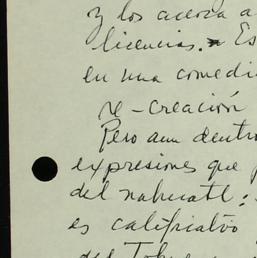 y los acerca a
licencias. Es
en una comedi
re-creación
Pero aun dentro
expresiones que p
del nahuatl:
es calificativo
del To